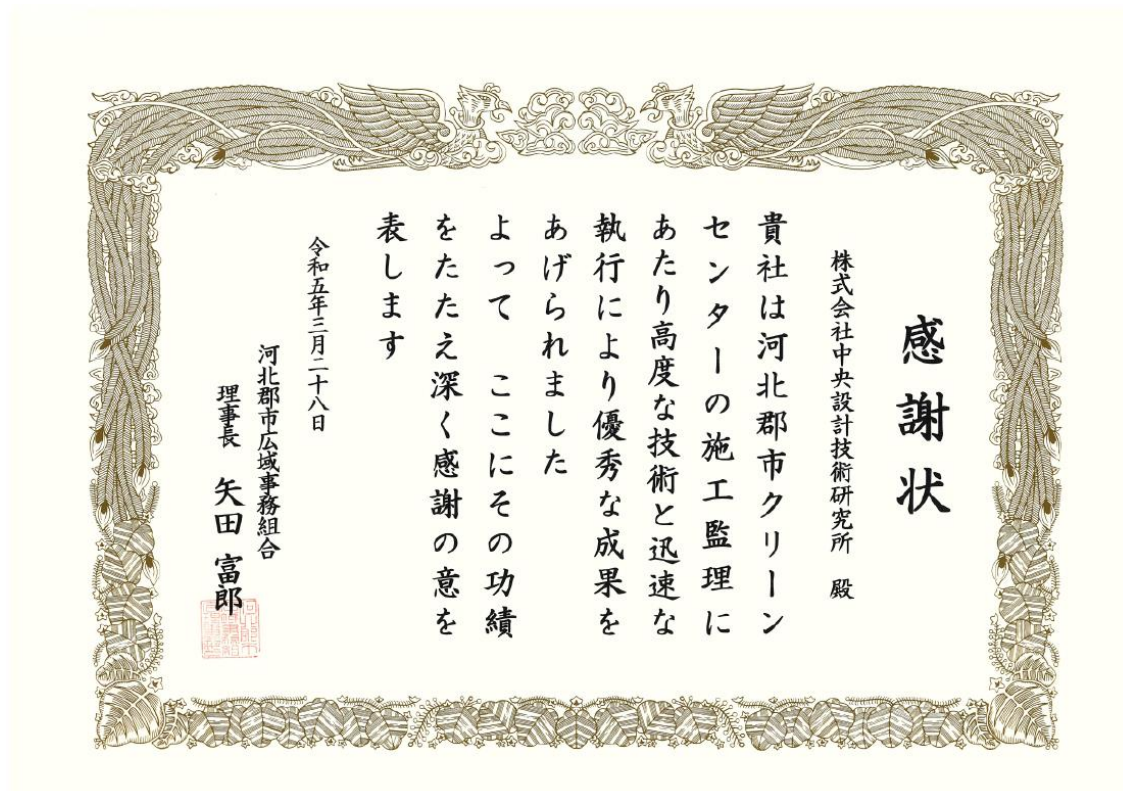 感謝状
株式会社中央設計技術研究所 殿
貴社は河北郡市クリーン
センターの施工監理に
あたり高度な技術と迅速な
執行により優秀な成果を
あげられました
よって ここにその功績
をたたえ深く感謝の意を
表します
令和五年三月二十八日
河北郡市広域事務組合
理事長 矢田 富郎